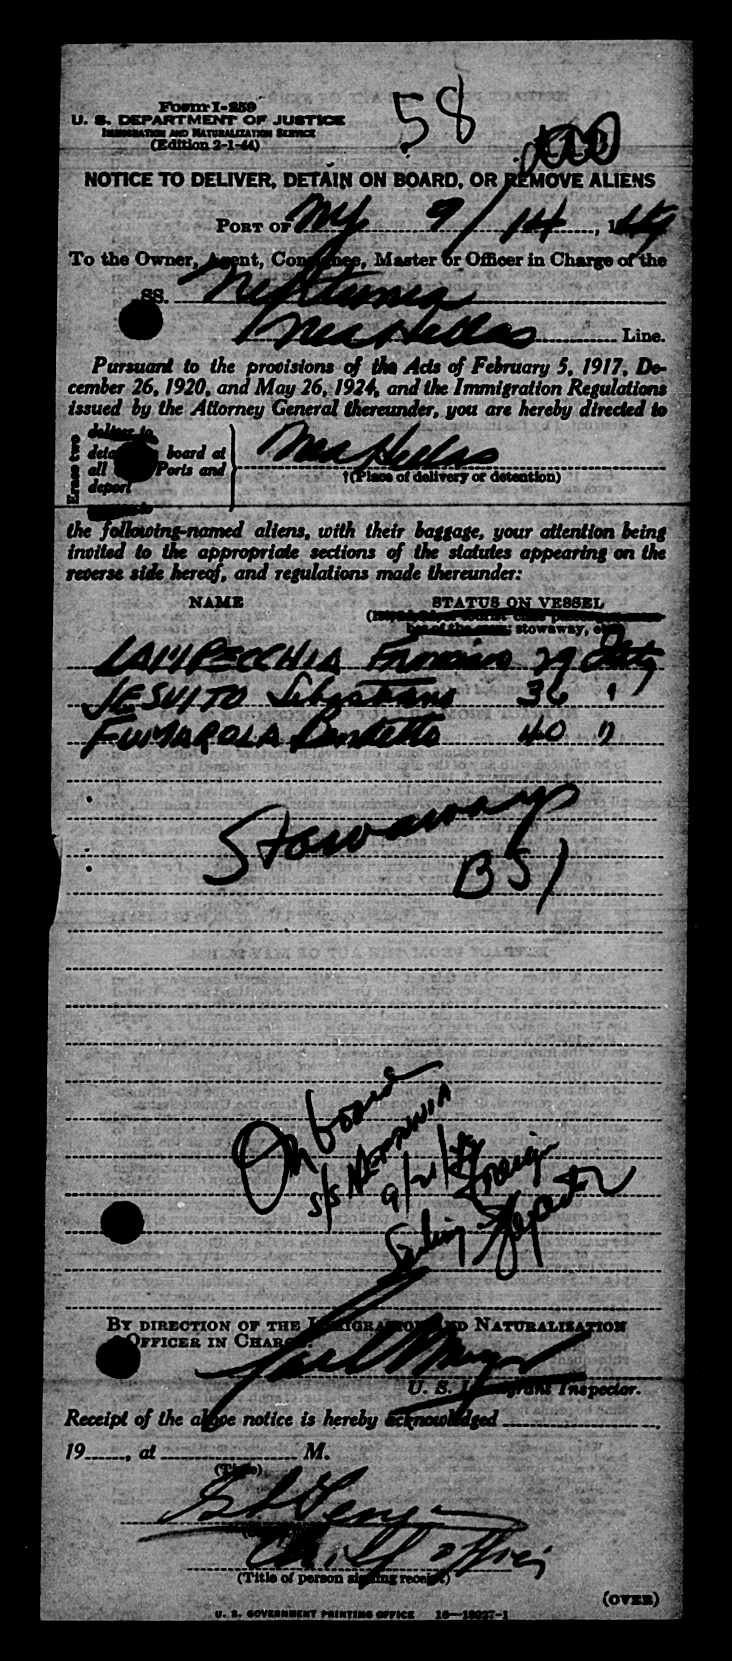 58
Form I-259
U. S. DEPARTMENT OF JUSTICE
IMMIGRATION AND NATURALIZATION SERVICE
(Edition 2-1-44)
NOTICE TO DELIVER, DETAIN ON BOARD, OR REMOVE ALIENS
PORT OF NY 9/14, 1949
To the Owner, Agent, Consignee, Master or Officer in Charge of the
SS. Neptunia
Nea Hellas Line.
Pursuant to the provisions of the Acts of February 5, 1917, De-
cember 26, 1920, and May 26, 1924, and the Immigration Regulations
issued by the Attorney General thereunder, you are hereby directed to
Erase two
deliver to
board at
all Ports and
deport
Nea Hellas
†(Place of delivery or detention)
the following-named aliens, with their baggage, your attention being
invited to the appropriate sections of the statutes appearing on the
reverse side hereof, and regulations made thereunder:
NAME STATUS ON VESSEL
stowaway,
LAMPECCHIA 29 Italy
JESUITO 36 "
FUMAROLA 40 "
Stowaways
BSI
On board
S/S NEPTUNIA
9/21/49 Foreign
Sailing
BY DIRECTION OF THE IMMIGRATION AND NATURALIZATION
OFFICER IN CHARGE.
U. S. Immigrant Inspector.
Receipt of the above notice is hereby acknowledged
19 , at M.
(Title)
Chief Officer
(Title of person signing receipt)
(OVER)
U. S. GOVERNMENT PRINTING OFFICE 16—19227-1